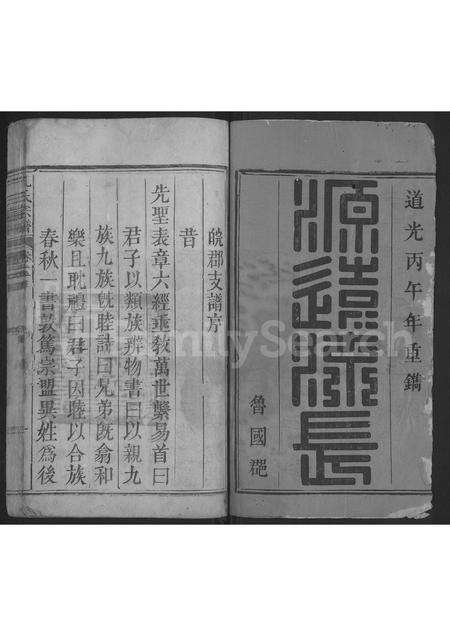 道光丙午年重鐫
源遠流長
魯國郡
皖郡支譜序
昔
先聖表章六經垂教萬世繫易首曰
君子以類族辨物書曰以親九
族九族既睦詩曰兄弟既翕和
樂且耽禮曰君子因睦以合族
春秋一書教篤宗盟異姓為後
氏宗譜
FamilySearch